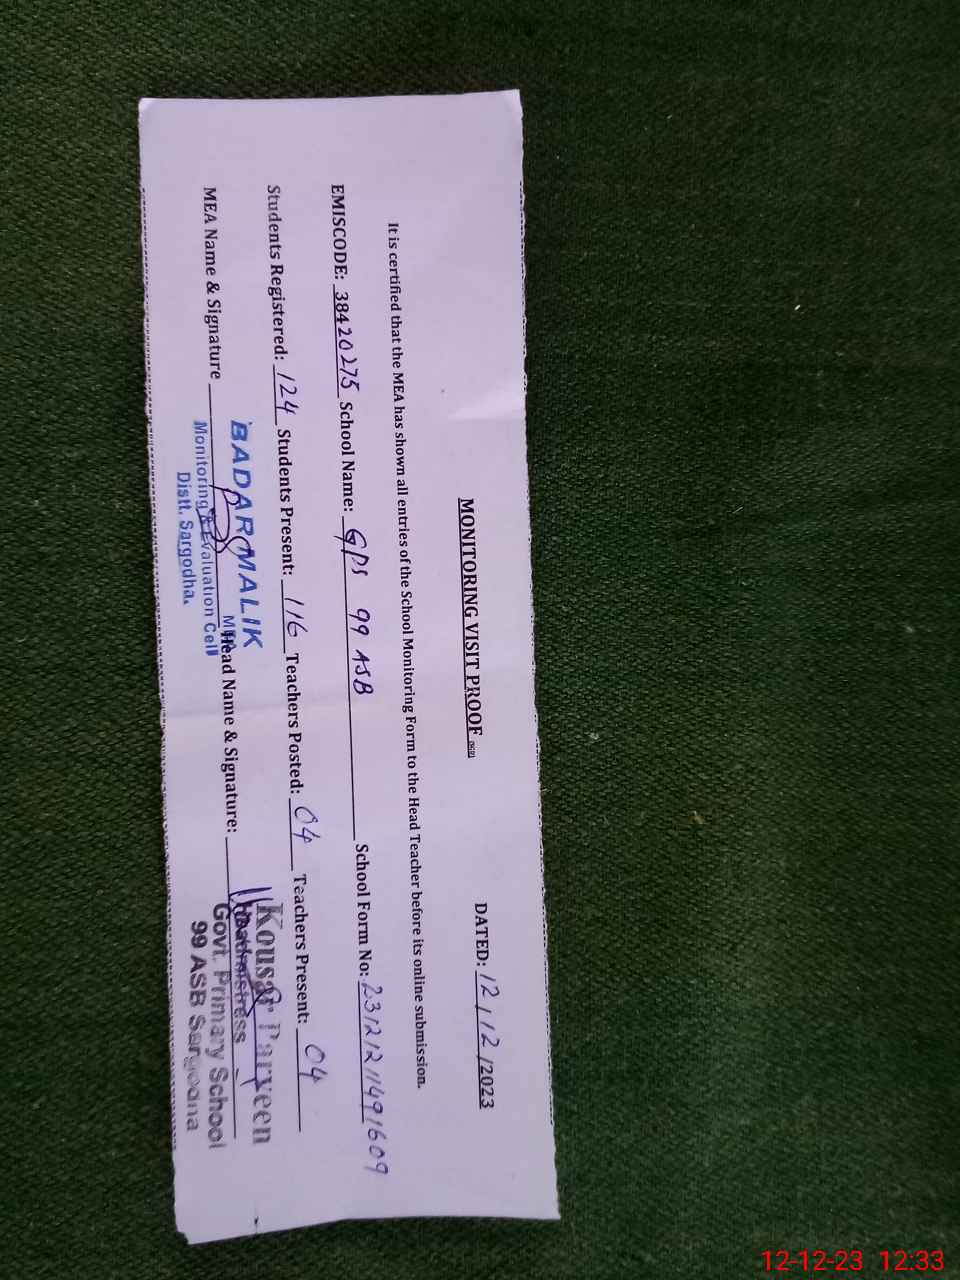 MONITORING VISIT PROOF
DATED: 12/12/2023
It is certified that the MEA has shown all entries of the School Monitoring Form to the Head Teacher before its online submission.
EMISCODE: 38420275 School Name: GPS 99 ASB School Form No: 23121211491609
Students Registered: 124 Students Present: 116 Teachers Posted: 04 Teachers Present: 04
MEA Name & Signature Head Name & Signature:
BADAR MALIK
MEA
Monitoring & Evaluation Cell
Distt. Sargodha.
Kousar Parveen
Headmistress
Govt. Primary School
99 ASB Sargodha
12-12-23 12:33